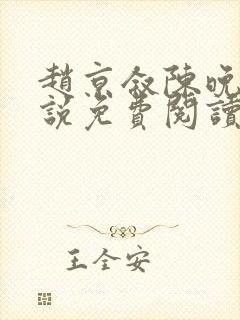 趙京敘陳晚
說免費閱讀
王全安